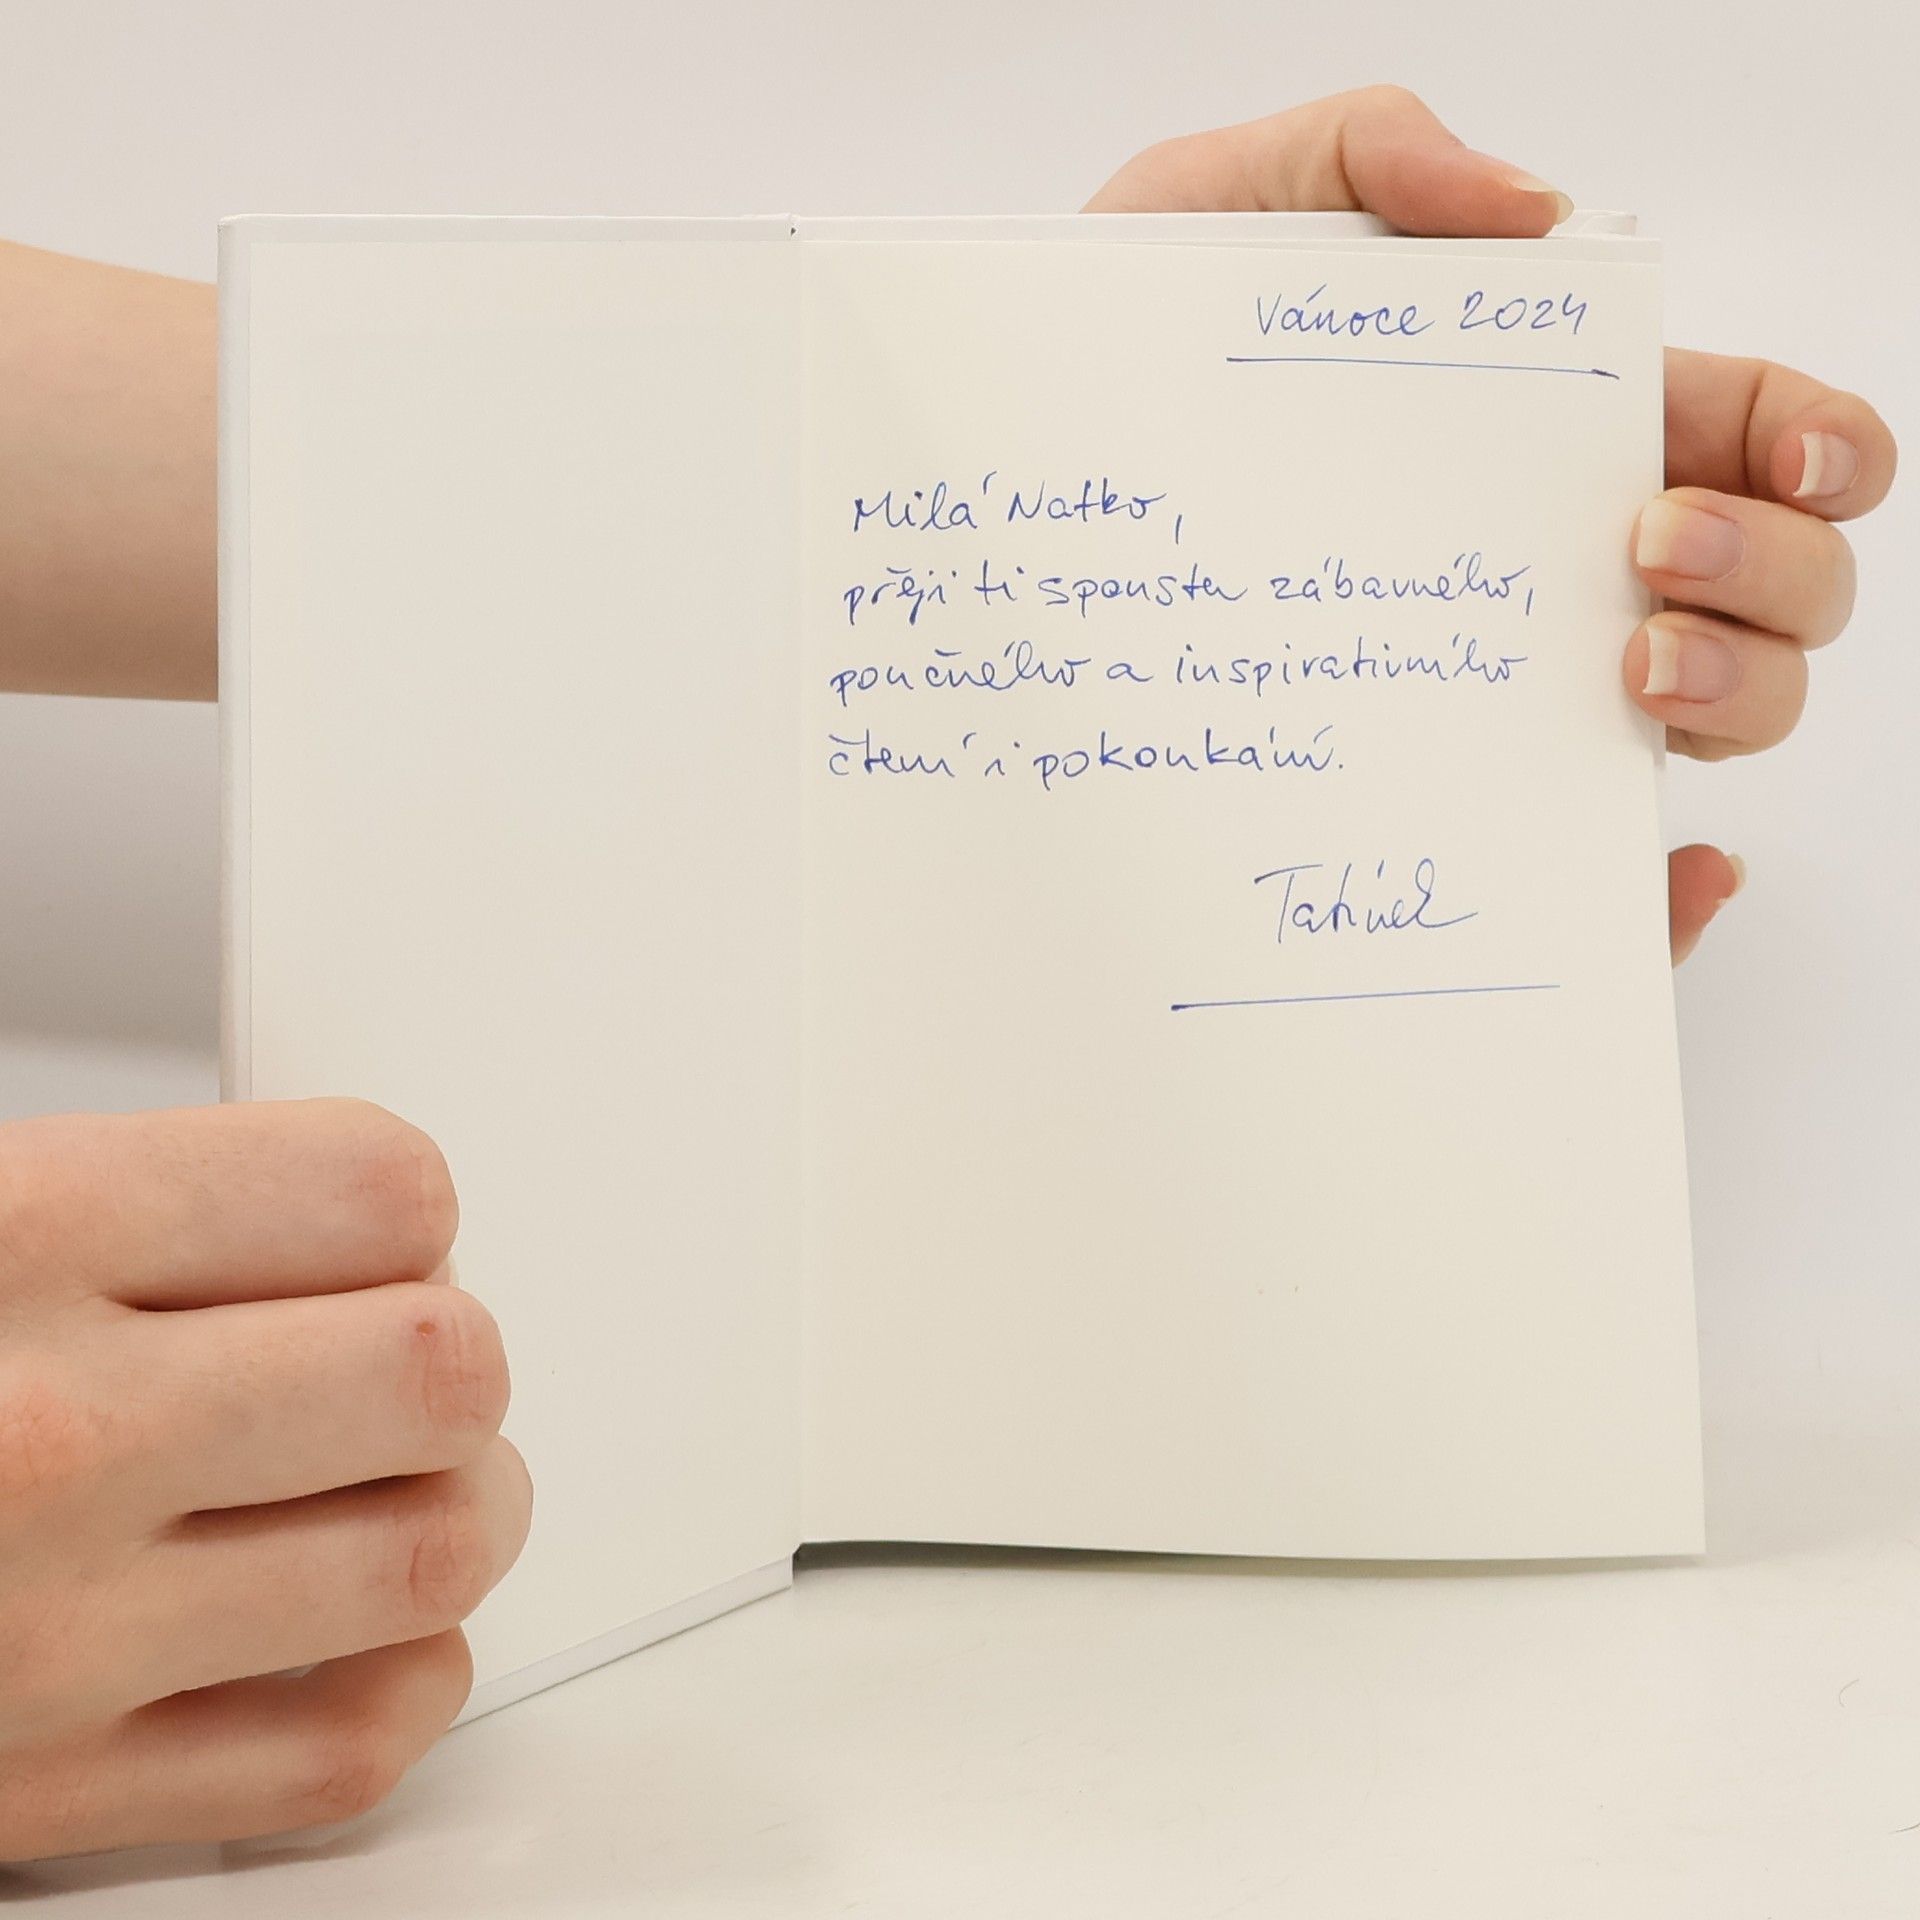 Vánoce 2024
Milá Natko,
přeji ti spoustu zábavného,
poučného a inspirativního
čtení i pokoukání.
Tatínek